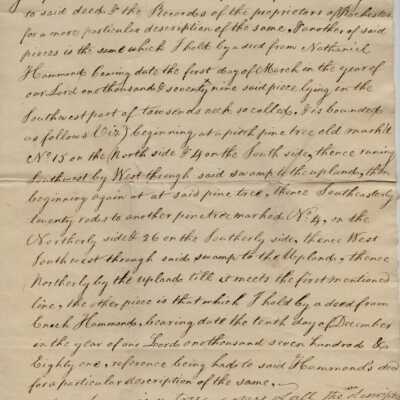 to said deed & the Records of the proprietors of Rochester
for a more particular description of the same. & another of said
pieces is the same which I hold by a deed from Nathaniel
Hammond bearing date the first day of March in the year of
our Lord one thousand & seventy nine said piece lying in the
Southwest part of townsends neck so called, & is bounded
as follows (Viz) beginning at a pitch pine tree old mark'd
No 15 on the North side & 4 on the South side, thence runing
Southwest by West through said swamp to the upland, then
beginning again at said pine tree, thence Southeasterly
twenty rods to another pine tree marked No 4, on the
Northerly side & 26 on the Southerly side, thence West
Southwest through said swamp to the Upland, thence
Northerly by the upland till it meets the first mentioned
line, the other piece is that which I hold by a deed from
Enoch Hammond, bearing date the tenth day of December
in the year of our Lord one thousand seven hundred &
Eighty one, reference being had to said Hammond's deed
for a particular description of the same.